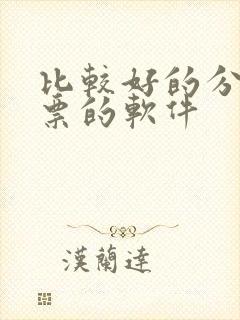 比較好的分
票的軟件
漢蘭達